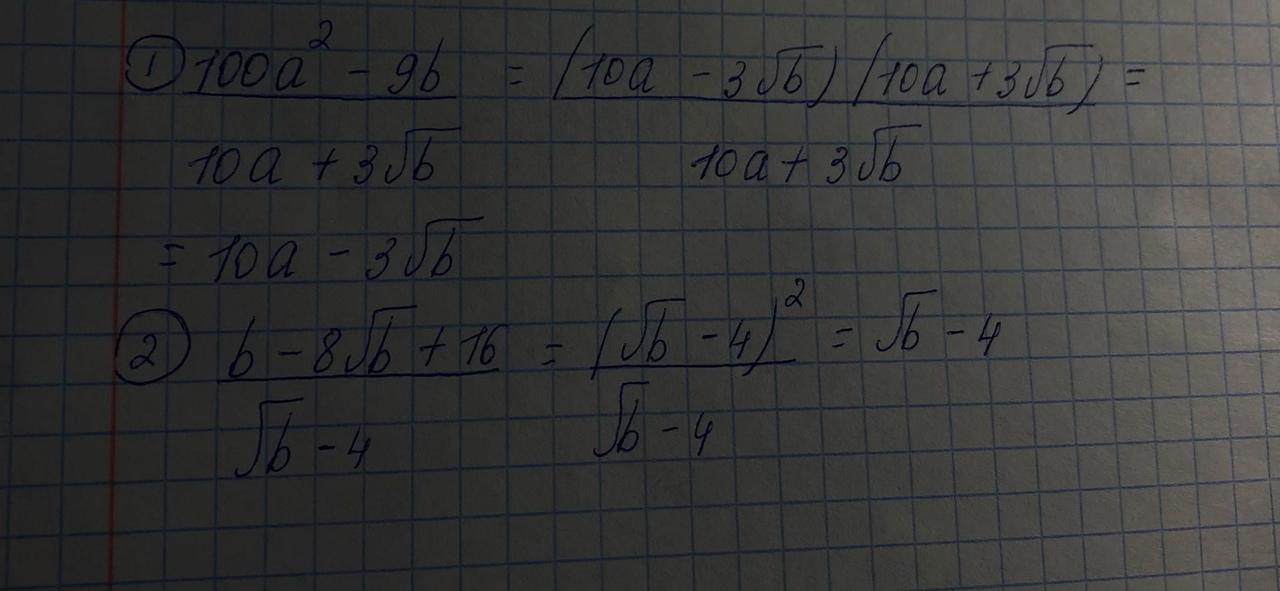 ① 100a² - 9b = (10a - 3√b) (10a + 3√b) =
10a + 3√b 10a + 3√b
= 10a - 3√b
② b - 8√b + 16 = (√b - 4)² = √b - 4
√b - 4 √b - 4